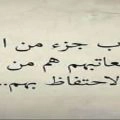 ب جزء من ا
عاتبهم هم من
لاحتفاظ بهم..